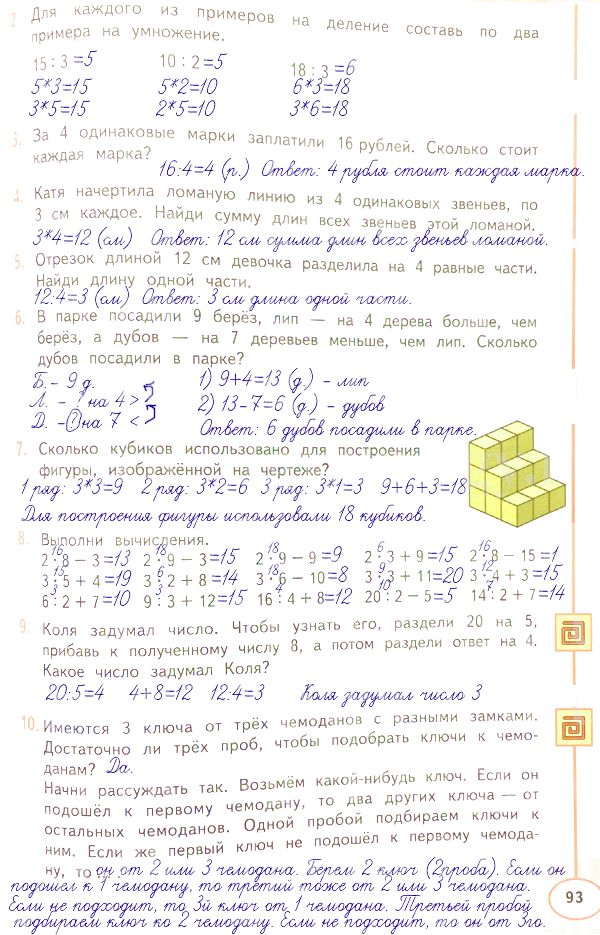 2. Для каждого из примеров на деление составь по два
примера на умножение.
15 : 3 =5 10 : 2 =5 18 : 3 =6
5*3=15 5*2=10 6*3=18
3*5=15 2*5=10 3*6=18
3. За 4 одинаковые марки заплатили 16 рублей. Сколько стоит
каждая марка?
16:4=4 (р.) Ответ: 4 рубля стоит каждая марка.
4. Катя начертила ломаную линию из 4 одинаковых звеньев, по
3 см каждое. Найди сумму длин всех звеньев этой ломаной.
3*4=12 (см) Ответ: 12 см сумма длин всех звеньев ломаной.
5. Отрезок длиной 12 см девочка разделила на 4 равные части.
Найди длину одной части.
12:4=3 (см) Ответ: 3 см длина одной части.
6. В парке посадили 9 берёз, лип — на 4 дерева больше, чем
берёз, а дубов — на 7 деревьев меньше, чем лип. Сколько
дубов посадили в парке?
Б. - 9 д. 1) 9+4=13 (д.) - лип
Л. - ? на 4 > 2) 13-7=6 (д.) - дубов
Д. - ? на 7 < Ответ: 6 дубов посадили в парке.
7. Сколько кубиков использовано для построения
фигуры, изображённой на чертеже?
1 ряд: 3*3=9 2 ряд: 3*2=6 3 ряд: 3*1=3 9+6+3=18
Для построения фигуры использовали 18 кубиков.
8. Выполни вычисления.
16 18 18 6 16
2 · 8 – 3 =13 2 · 9 – 3 =15 2 · 9 – 9 =9 2 · 3 + 9 =15 2 · 8 – 15 =1
15 6 18 9 12
3 · 5 + 4 =19 3 · 2 + 8 =14 3 · 6 – 10 =8 3 · 3 + 11 =20 3 · 4 + 3 =15
3 3 4 10 7
6 : 2 + 7 =10 9 : 3 + 12 =15 16 : 4 + 8 =12 20 : 2 – 5 =5 14 : 2 + 7 =14
9. Коля задумал число. Чтобы узнать его, раздели 20 на 5,
прибавь к полученному числу 8, а потом раздели ответ на 4.
Какое число задумал Коля?
20:5=4 4+8=12 12:4=3 Коля задумал число 3
10. Имеются 3 ключа от трёх чемоданов с разными замками.
Достаточно ли трёх проб, чтобы подобрать ключи к чемо-
данам? Да.
Начни рассуждать так. Возьмём какой-нибудь ключ. Если он
подошёл к первому чемодану, то два других ключа — от
остальных чемоданов. Одной пробой подбираем ключи к
ним. Если же первый ключ не подошёл к первому чемода-
ну, то он от 2 или 3 чемодана. Берем 2 ключ (2проба). Если он
подошел к 1 чемодану, то третий тоже от 2 или 3 чемодана.
Если не подходит, то 3й ключ от 1 чемодана. Третьей пробой
подбираем ключ ко 2 чемодану. Если не подходит, то он от 3го.
93